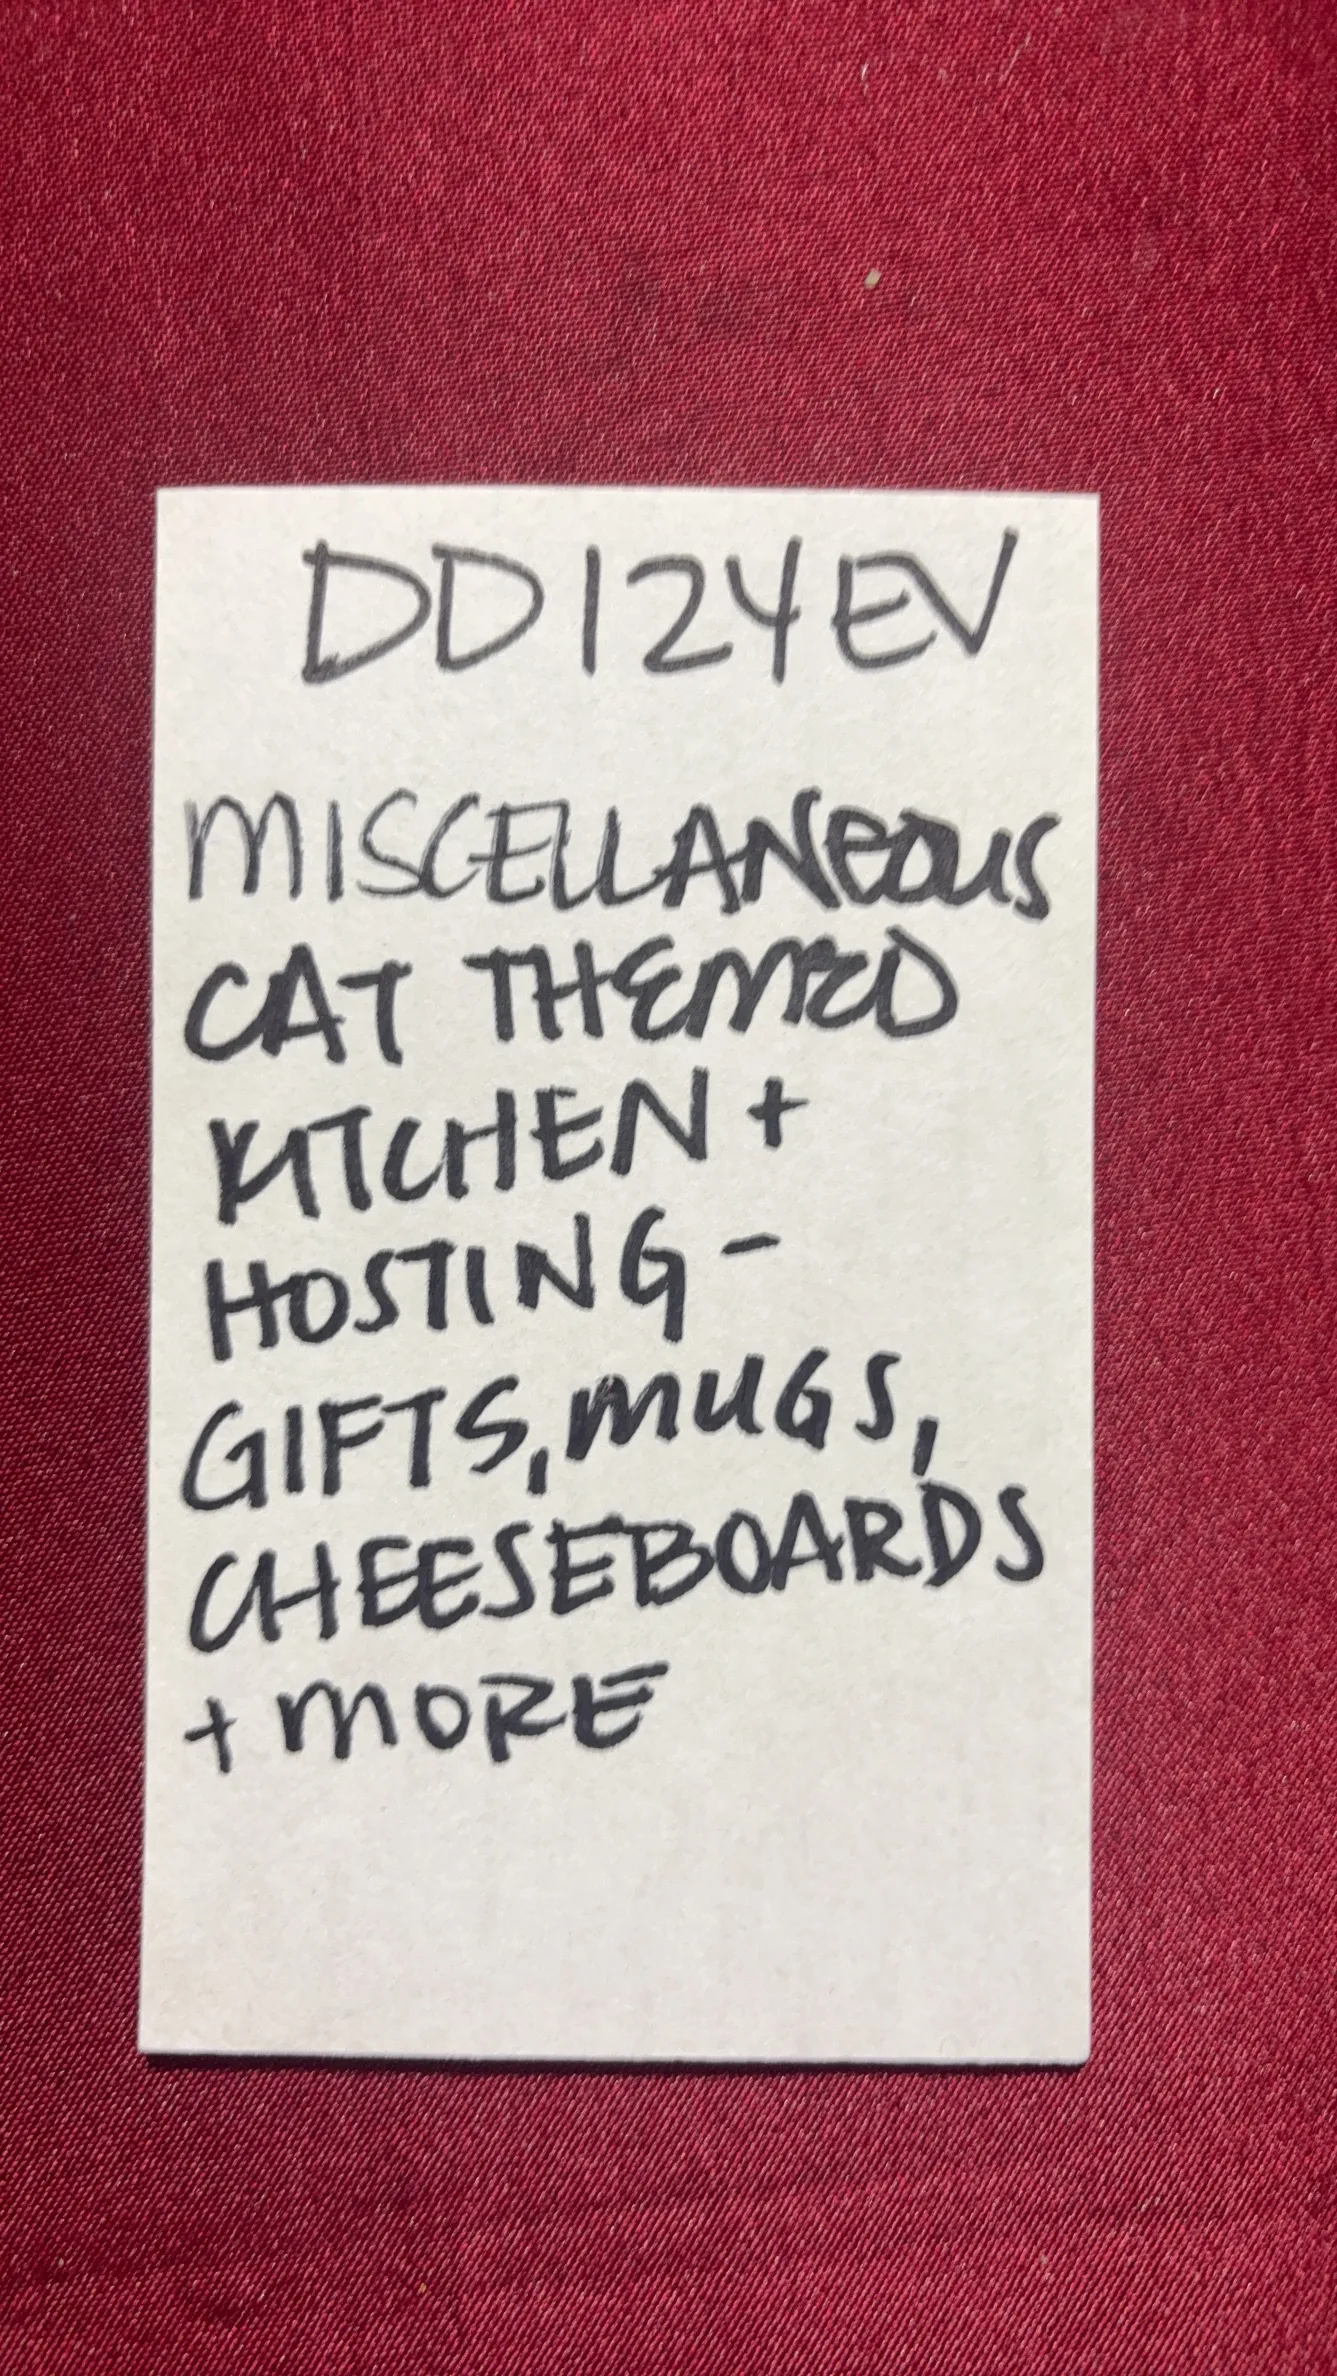 DD124EV
MISCELLANEOUS
CAT THEMED
KITCHEN +
HOSTING -
GIFTS, MUGS,
CHEESEBOARDS
+ MORE